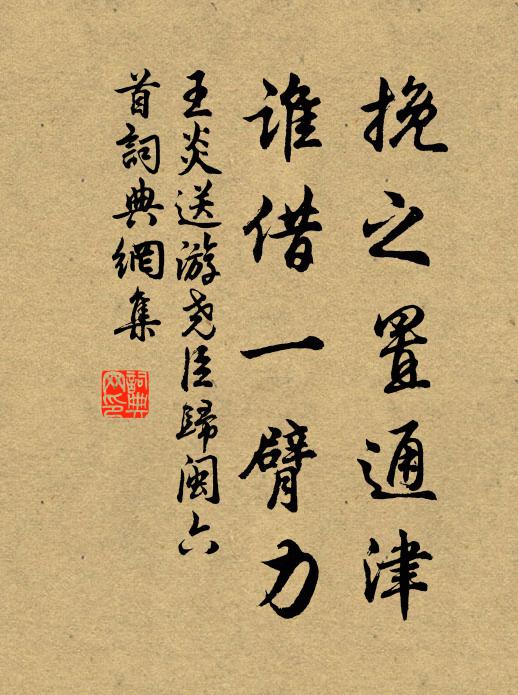 挽之置通津
谁借一臂力
王炎送游尧臣歸闽六
首詞典網集
詞典
網印